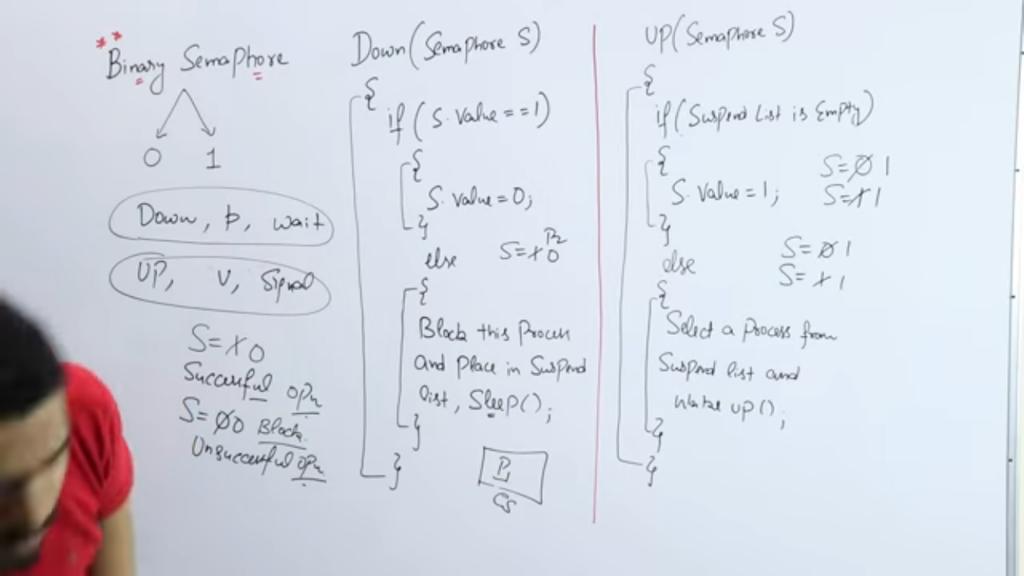 ** Binary Semaphore
0 1
Down, p, wait
UP, V, Signal
S=1̸ 0
Successful opn
S=0̸ 0 Block
Unsuccessful opn
Down(Semaphore S)
{
if (S.value==1)
{
S.value=0;
}
else S=1̸ 0 P2
{
Block this Process
and place in Suspend
list, Sleep();
}
}
P1
CS
UP(Semaphore S)
{
if(Suspend List is Empty)
{ S=0̸ 1
S.value=1; S=1̸ 1
}
else S=0̸ 1
S=1̸ 1
{
Select a Process from
Suspend list and
wake up();
}
}